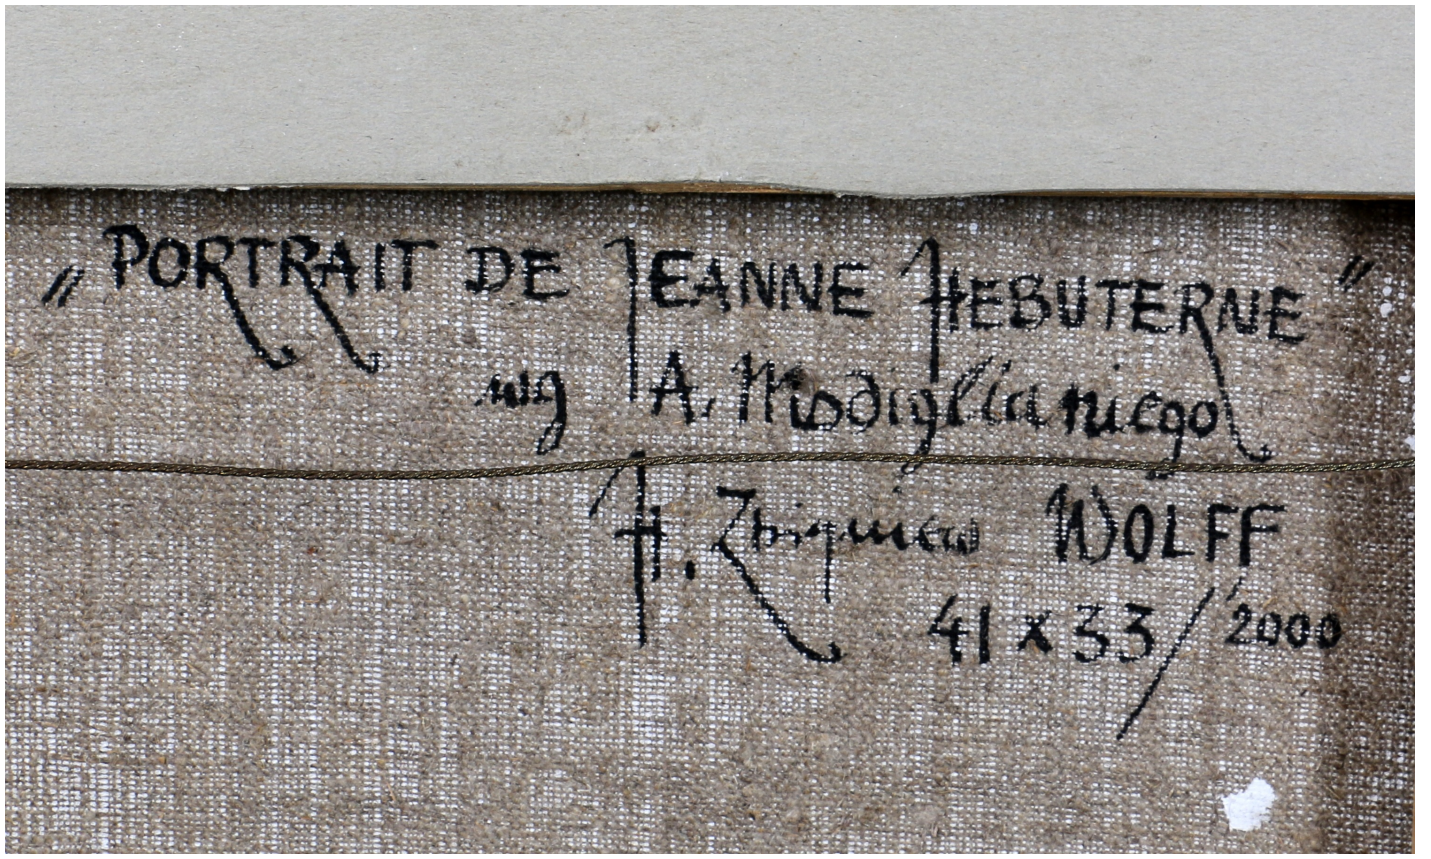 „PORTRAIT DE JEANNE HEBUTERNE”
wg A. Modiglianiego
H. Zbigniew WOLFF
41 x 33/2000